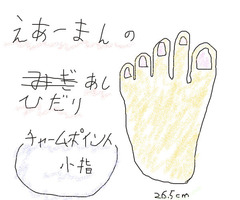 えあーまんの
みぎあし
ひだり
チャームポイント
小指
26.5cm